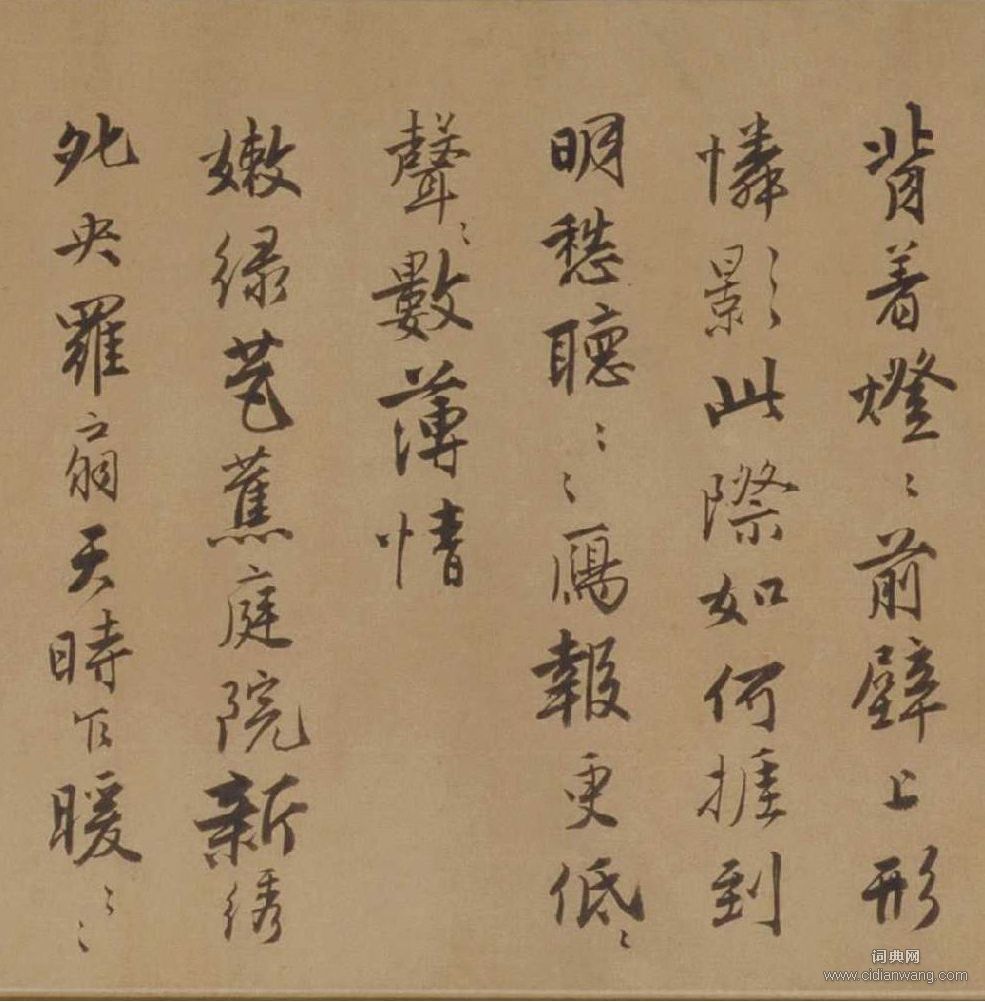 背着燈〻前壁上形
憐影此際如何捱到
明愁聽〻〻鴈報更低〻
聲〻數薄情
嫩绿芭蕉庭院新绣
央羅扇天時乍暖〻〻
词典网
www.cidianwang.com